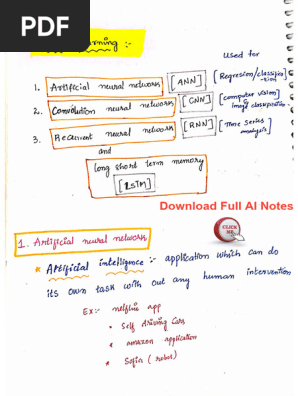 PDF
arning :-
Used for
1. Artificial neural network [ANN] [Regression/classification]
2. Convolution neural network [CNN] [computer vision & image classification]
3. Recurrent neural network [RNN] [Time Series analysis]
and
long short term memory
[LSTM]
Download Full AI Notes
CLICK ME
1. Artificial neural network
* Artificial intelligence :- application which can do
its own task with out any human intervention
Ex:- netflix app
• Self driving Cars
• amazon application
• Sofia (robot)